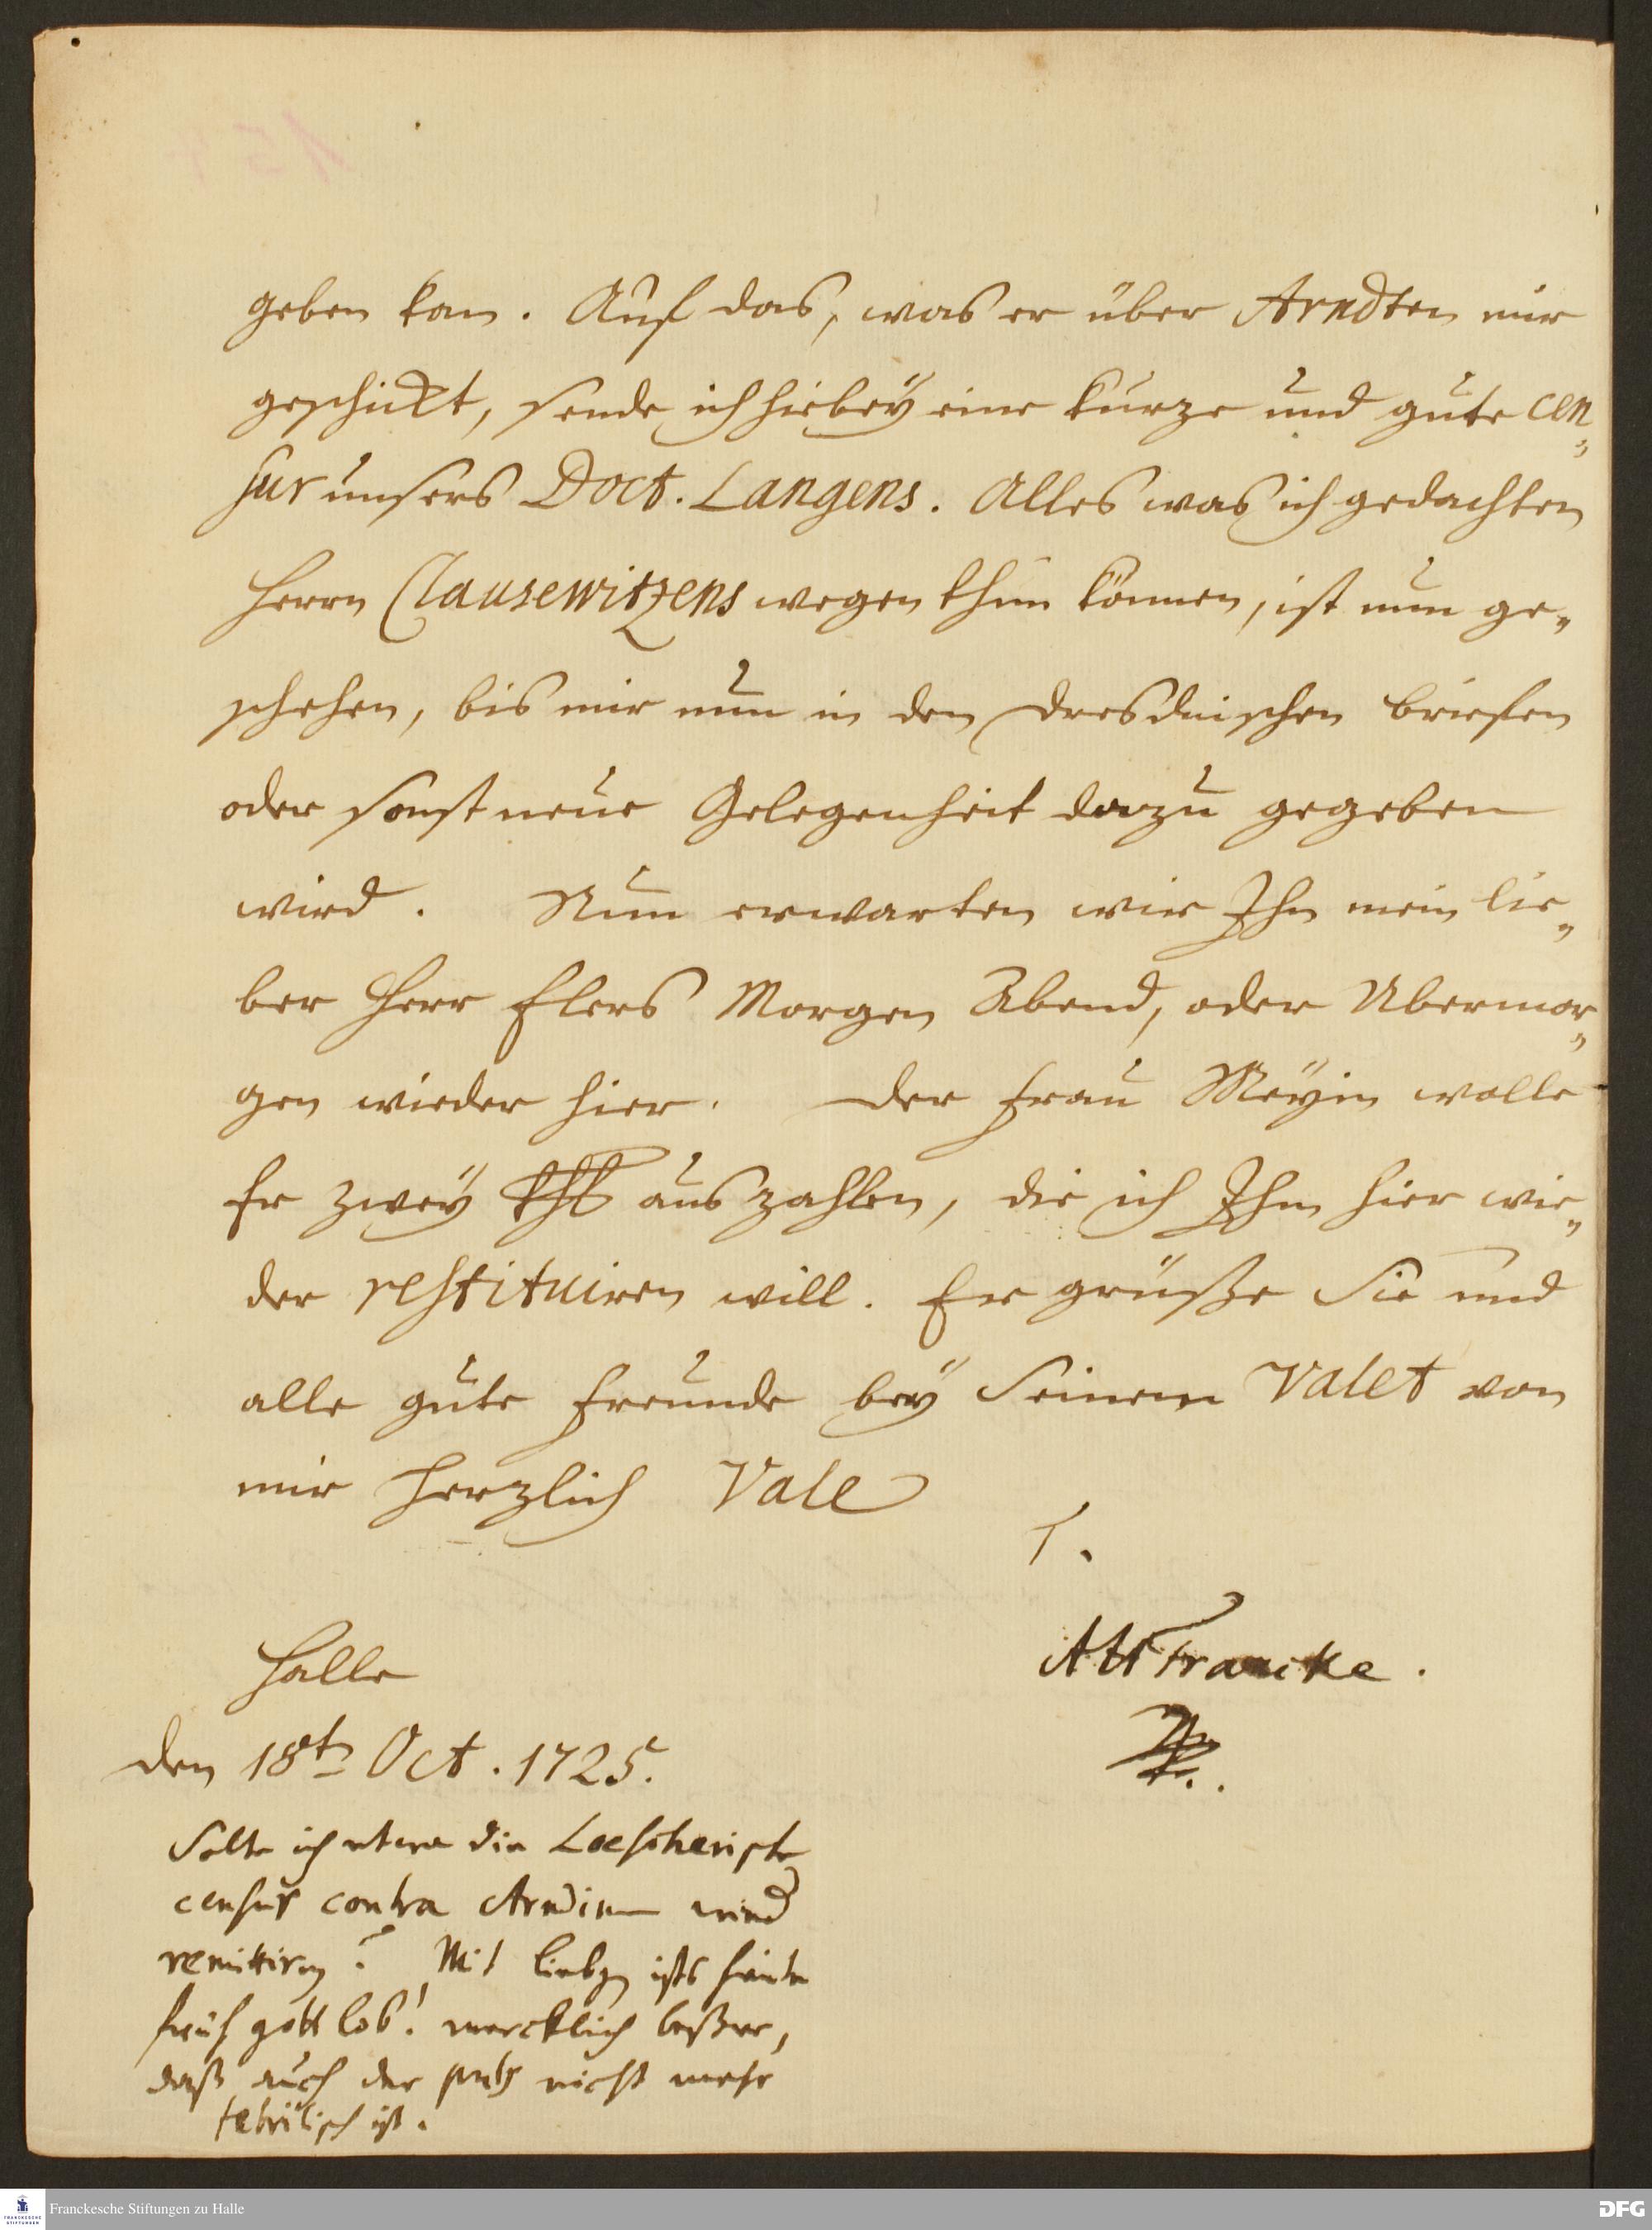 geben kan. Auf das, was er über Arndten mir
geschickt, sende ich hiebey eine kurze und gute cen„
sur unsers Doct. Langens. Alles was ich gedachten
Herrn Clausewitzens wegen thun können, ist nun ge„
schehen, bis mir nun in den Dresdnischen briefen
oder sonst neue Gelegenheit dazu gegeben
wird. Nun erwarten wir Ihn mein lie„
ber Herr Elers Morgen Abend, oder Ubermor„
gen wieder hier. Der Frau Meyin wolle
Er zwey Thl auszahlen, die ich Ihm hier wie„
der restituiren will. Er grüße Sie und
alle gute Freunde bey Seinem Valet von
mir Herzlich Vale
T.
AHFrancke.
Halle
den 18t Oct. 1725.
Solte ich etwa die Loescherische
censur contra Arndium
remittiren? Mit ists heute
früh gott lob! mercklich beßer,
daß auch der puls nicht mehr
febrilisch ist.
Franckesche Stiftungen zu Halle
FRANCKESCHE
STIFTUNGEN
DFG